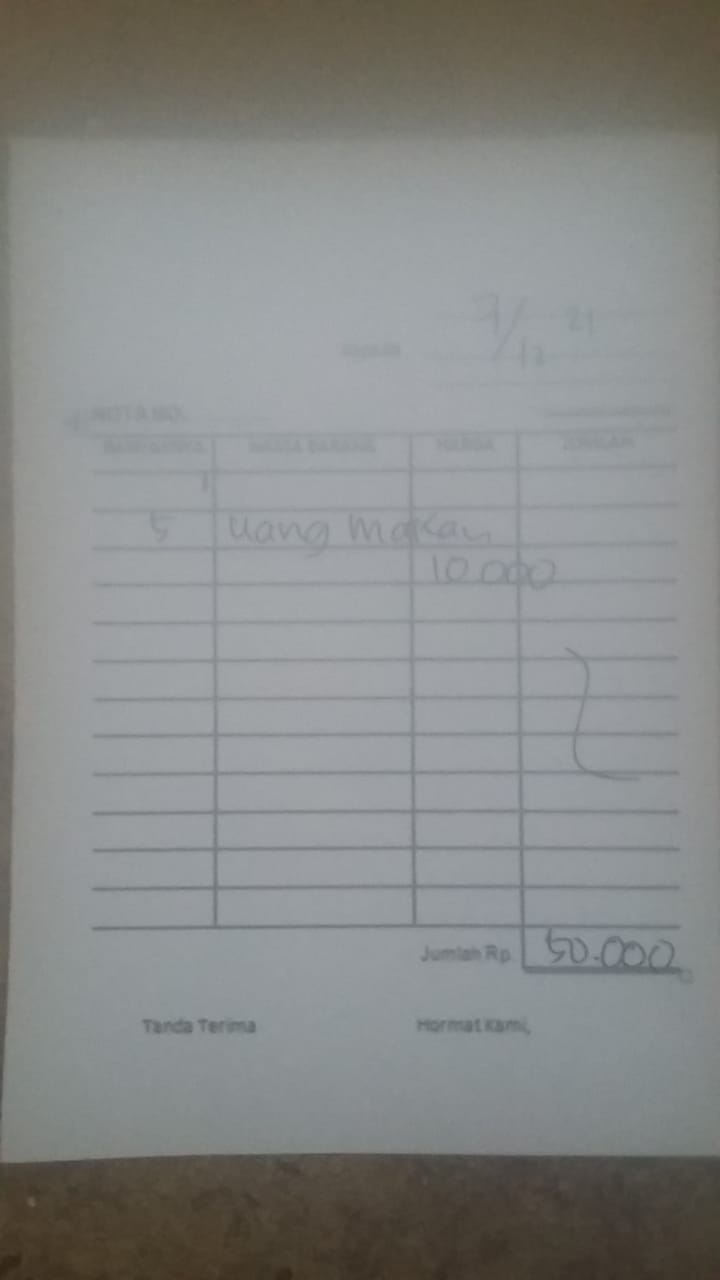 7/12 21
Kepada
NOTA NO.
BANYAKNYA NAMA BARANG HARGA JUMLAH
5 uang makan
10.000
Jumlah Rp. 50.000
Tanda Terima Hormat Kami,